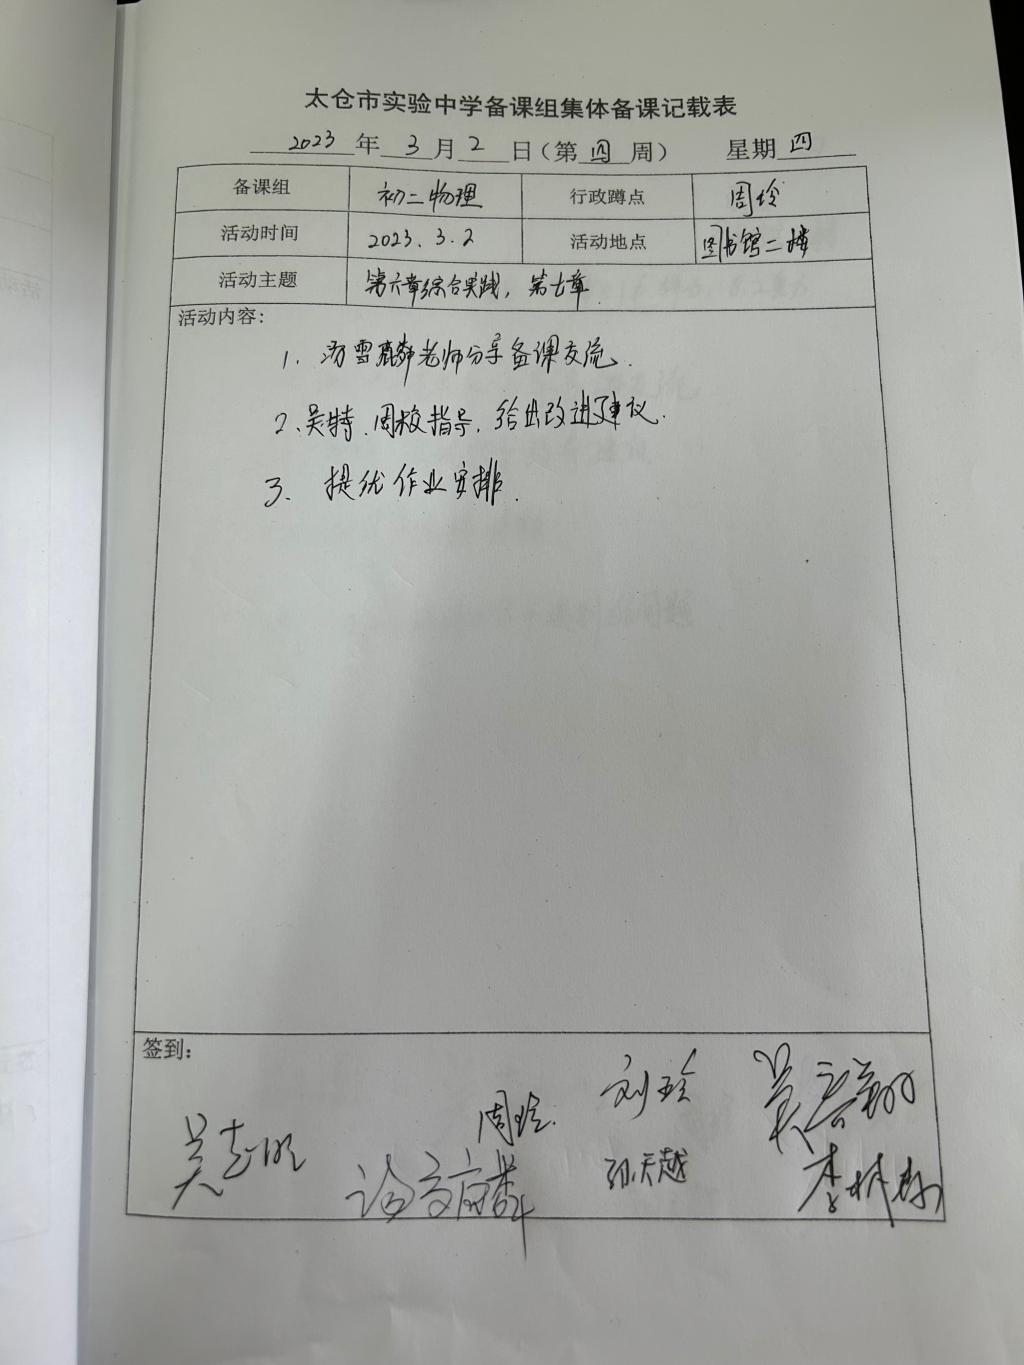 太仓市实验中学备课组集体备课记载表
2023年3月2日(第四周) 星期四
备课组 初二物理 行政蹲点 周玲
活动时间 2023.3.2 活动地点 图书馆二楼
活动主题 第六章综合实践，第七章
活动内容:
1. 老师分享备课交流.
2、吴特、周校指导，给出改进建议.
3、提优作业安排.
签到:
刘玲
周玲.
吴志明
孙天越